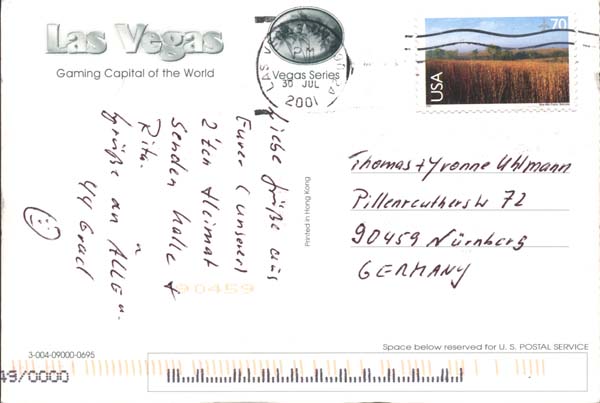 Las Vegas
Gaming Capital of the World
Vegas Series
LAS VEGAS
PM
30 JUL
2001
70
USA
Liebe Grüße aus
Eurer (unserer)
2'ten Heimat
Senden Kalle +
Rita.
Grüße an Alle u.
44 Grad
Printed in Hong Kong
Thomas + Yvonne Uhlmann
Pillenreutherstr 72
90459 Nürnberg
GERMANY
90459
3-004-09000-0695
Space below reserved for U. S. POSTAL SERVICE
49/0000